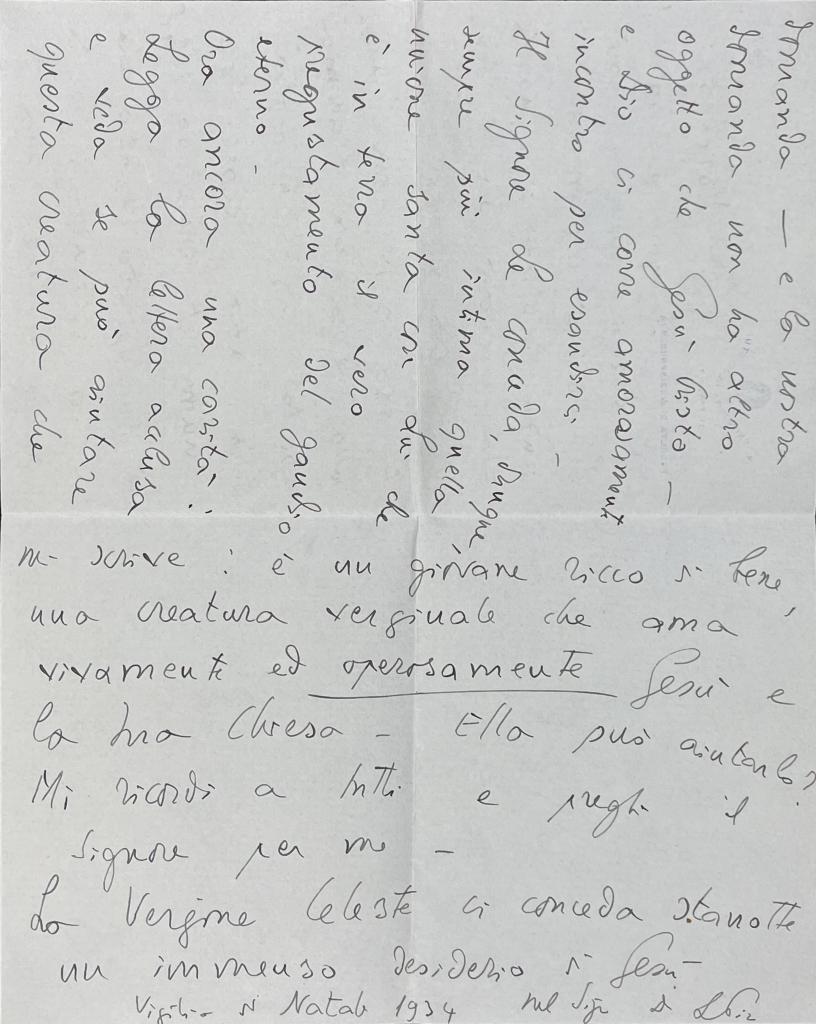 domanda — e la nostra
domanda non ha altro
oggetto che Gesù Cristo —
e Dio ci corre amorosamente
incontro per esaudirci —
Il Signore Le conceda, dunque,
sempre più intima quella
unione santa con Lui che
è in terra il vero
pregustamento del gaudio
eterno —
Ora ancora una carità:
Legga la lettera acclusa
e veda se può aiutare
questa creatura che
mi scrive: è un giovane ricco di bene,
una creatura verginale che ama
vivamente ed operosamente Gesù e
la sua Chiesa — Ella può aiutarlo?
Mi ricordi a tutti e preghi il
Signore per me —
La Vergine Celeste ci conceda stanotte
un immenso desiderio di Gesù —
Vigilia di Natale 1934 nel